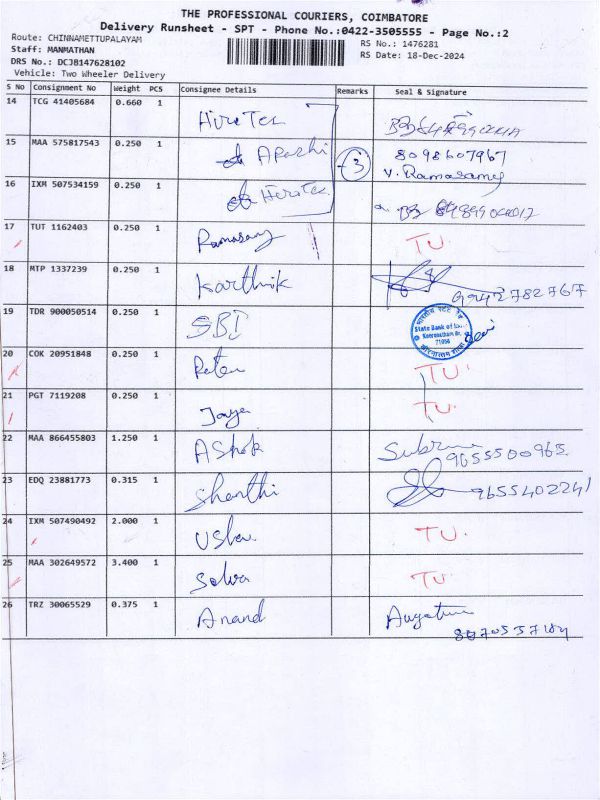 THE PROFESSIONAL COURIERS, COIMBATORE
Delivery Runsheet - SPT - Phone No.:0422-3505555 - Page No.:2
Route: CHINNAMETTUPALAYAM
RS No.: 1476281
Staff: MANMATHAN
RS Date: 18-Dec-2024
DRS No.: DCJB147628102
Vehicle: Two Wheeler Delivery
S No Consignment No Weight PCS Consignee Details Remarks Seal & Signature
14 TCG 41405684 0.660 1
15 MAA 575817543 0.250 1 8098607967
3 V. Ramasamy
16 IXM 507534159 0.250 1
17 TUT 1162403 0.250 1 Ramasamy TU.
18 MTP 1337239 0.250 1 Karthik
19 TDR 900050514 0.250 1 SBI
State Bank of
20 COK 20951848 0.250 1 TU.
21 PGT 7119208 0.250 1 Jaya TU.
22 MAA 866455803 1.250 1 AShok
9655500965.
23 EDQ 23881773 0.315 1 Shanthi 9655402241
24 IXM 507490492 2.000 1 Usha TU.
25 MAA 302649572 3.400 1 Selva TU.
26 TRZ 30065529 0.375 1 Anand